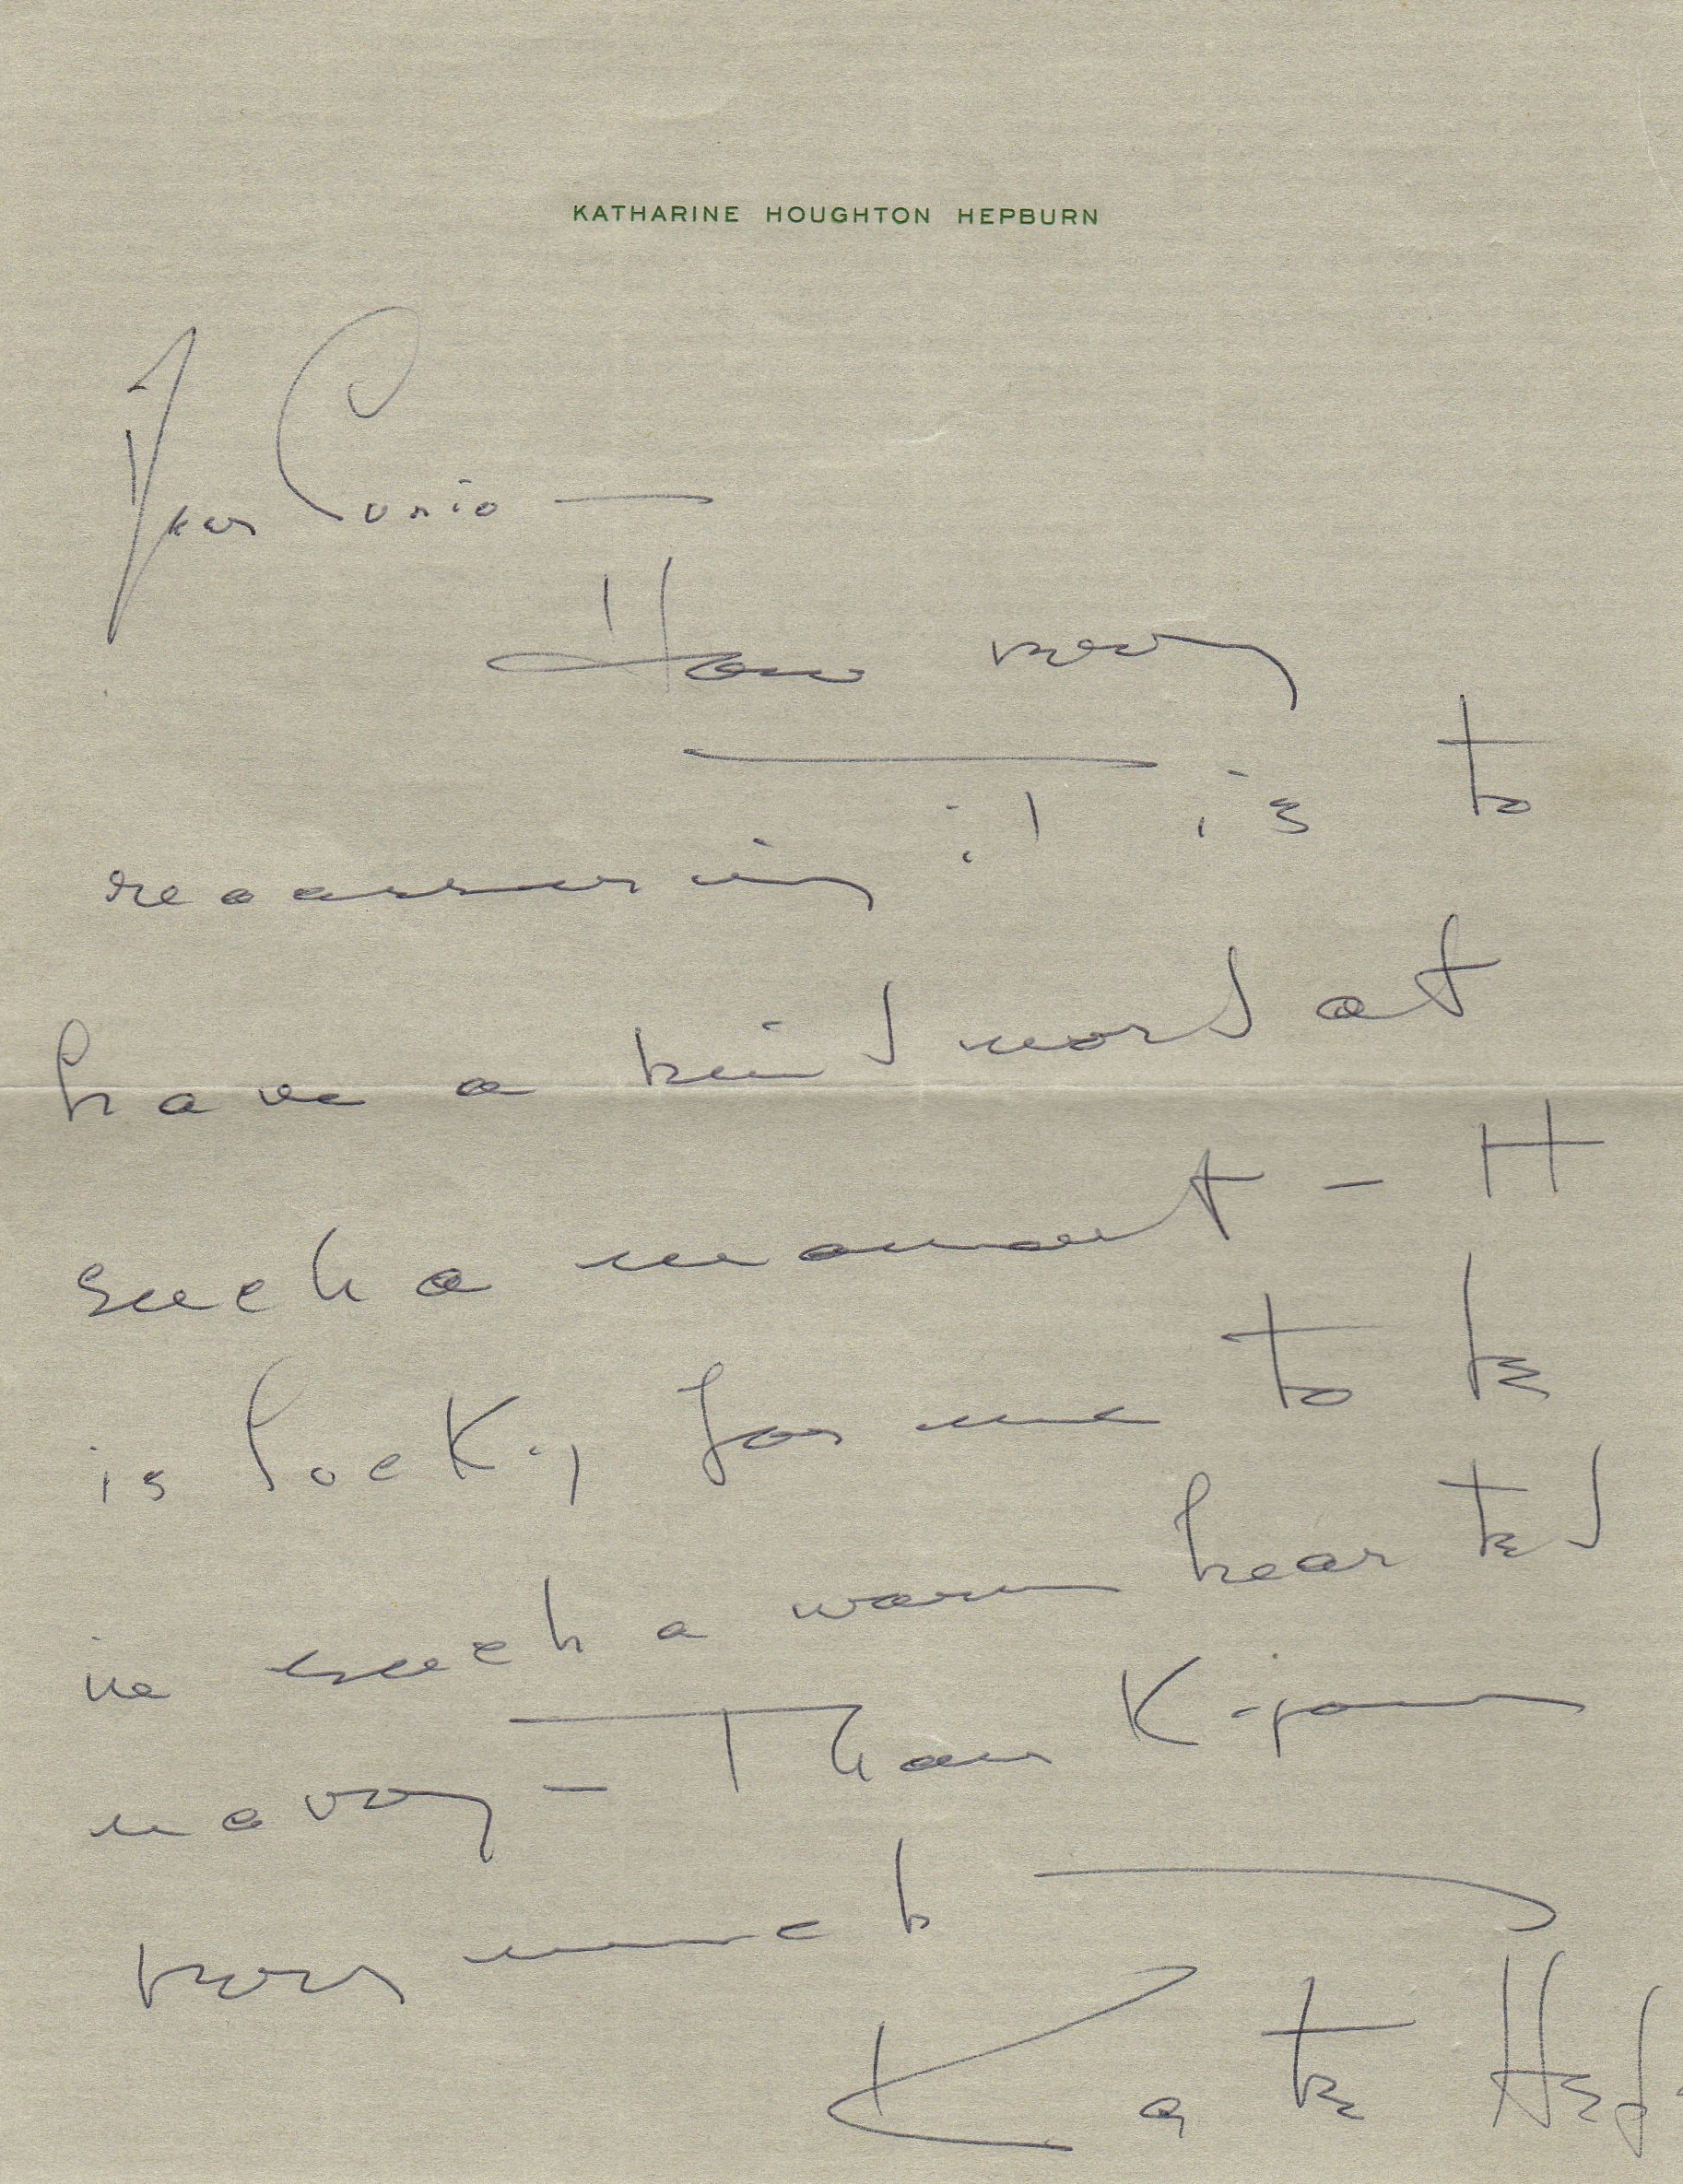 KATHARINE HOUGHTON HEPBURN
Dear Curio —
How very
reassuring it is to
have a kind word at
such a moment — It
is lucky for me to be
in such a warm hearted
navy — Thank-you
very much
Kate Hep